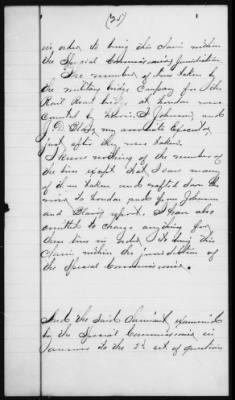 (25)
in order to bring this claim within
the Special Commissioners jurisdiction
The number of trees taken by
the military bridge Company for the
Rail Road bridge at Loudon were
counted by Morris. T. Johnson, and
J. D. Blair my associate Executor
just after they were taken.
I know nothing of the number of
the trees except that I saw many
of them taken and rafted down the
river to Loudon and from Johnson
and Blairs report. I have also
omitted to charge anything for
these trees in order to bring this
Claim within the jurisdiction of
the Special Commissioner.
And the said Claimant examined
by the Special Commissioner in
answer to the 2d set of questions